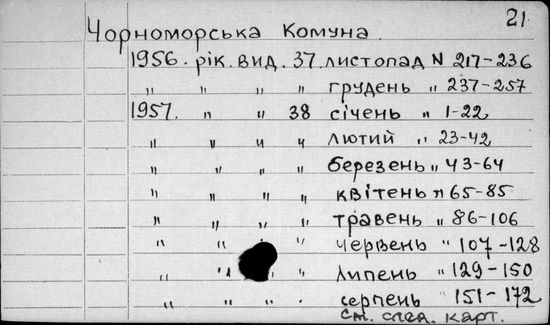 21
Чорноморська Комуна.
1956. рік. вид. 37 листопад N 217-236
" " " " грудень " 237-257
1957. " " 38 січень " 1-22
" " " " лютий " 23-42
" " " " березень " 43-64
" " " " квітень " 65-85
" " " " травень " 86-106
" " " " червень " 107-128
" " " липень " 129-150
" " " " серпень " 151-172
См. след. карт.